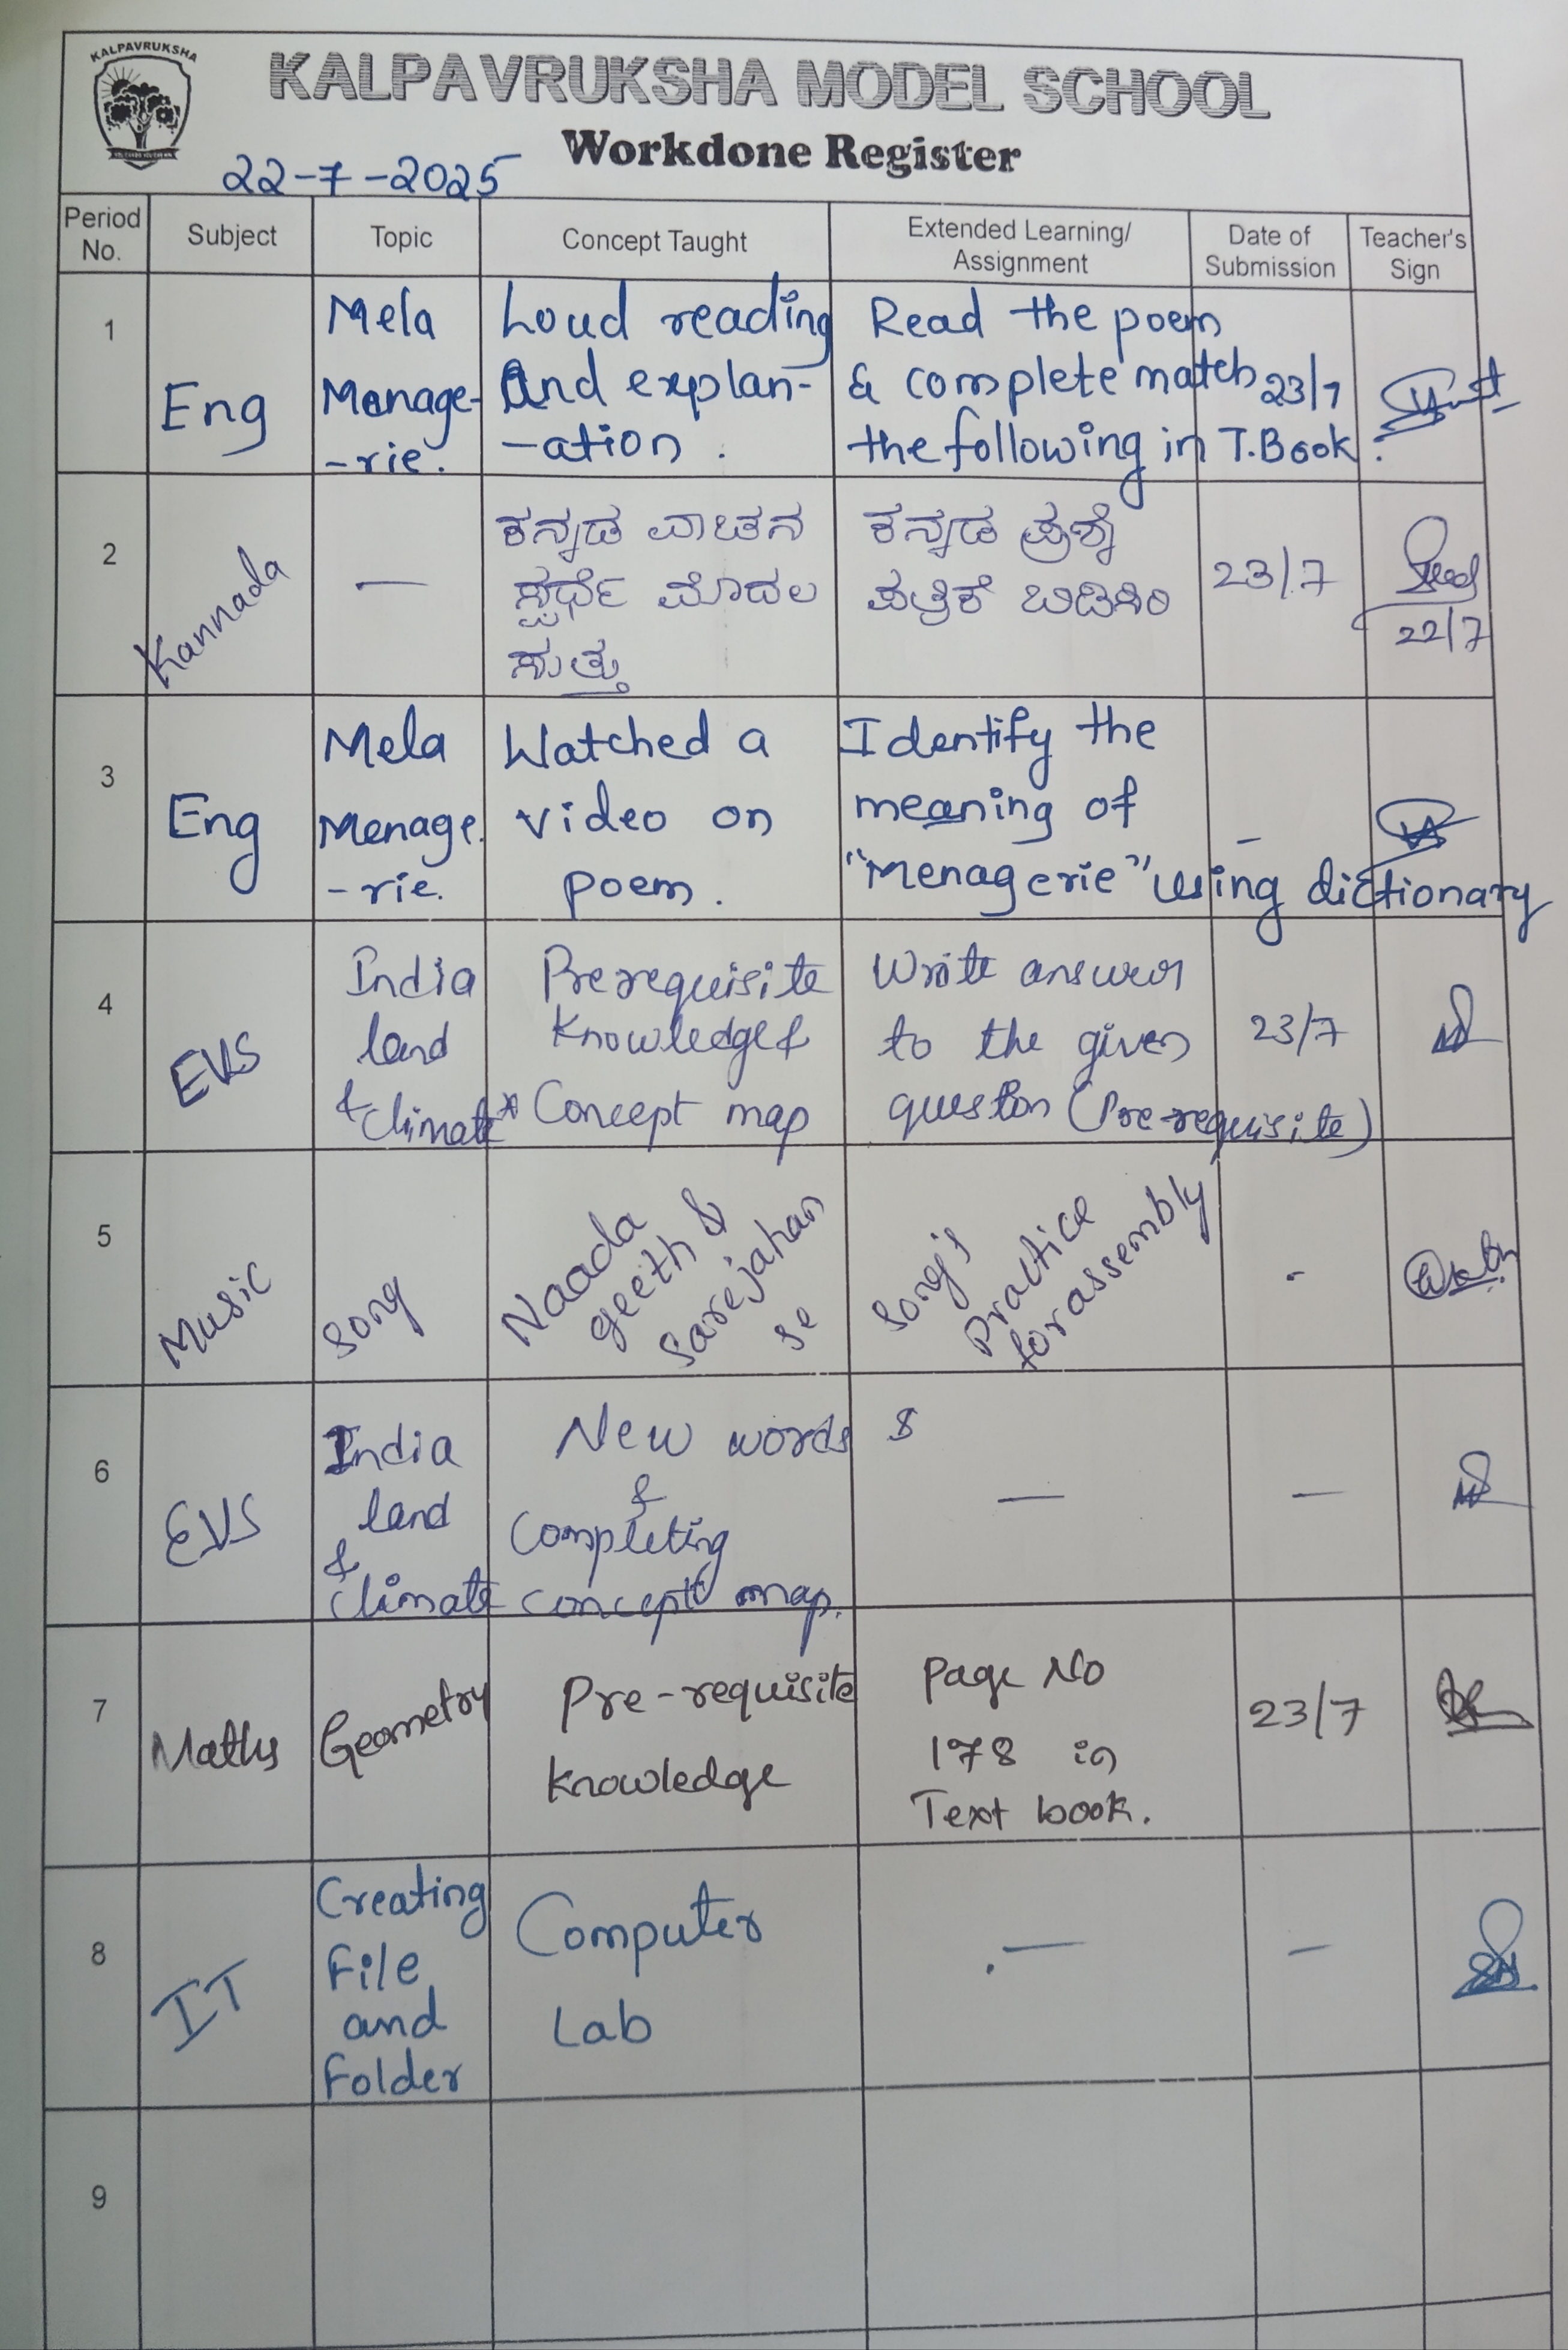 KALPAVRUKSHA
KALPAVRUKSHA MODEL SCHOOL
Workdone Register
22-7-2025
Period No. Subject Topic Concept Taught Extended Learning/ Assignment Date of Submission Teacher's Sign
1 Eng
Mela
Menage-
-rie.
Loud reading
And explan-
-ation.
Read the poem
& complete match
the following in T.Book.
23/7
2 Kannada
—
ಕನ್ನಡ ವಾಚನ
ಸ್ಪರ್ಧೆ ಮೊದಲ
ಸುತ್ತು
ಕನ್ನಡ ಪ್ರಶ್ನೆ
ಪತ್ರಿಕೆ ಬಿಡಿಸಿರಿ
23/7
22/7
3 Eng
Mela
Menage.
-rie.
Watched a
video on
poem.
Identify the
meaning of
"Menagerie" using dictionary
-
4 EVS
India
land
& climate
Prerequisite
Knowledge &
* Concept map
Write answer
to the given
question (Pre-requisite)
23/7
5 Music
Song
Naada
geeth &
Sarejahan
se
Song's
Practice
for assembly
-
6 EVS
India
land
&
climate
New words
&
Completing
concept map.
—
—
7 Maths
Geometry
Pre-requisite
knowledge
Page No
178 in
Text book.
23/7
8 IT
Creating
File
and
Folder
Computer
Lab
—
—
9